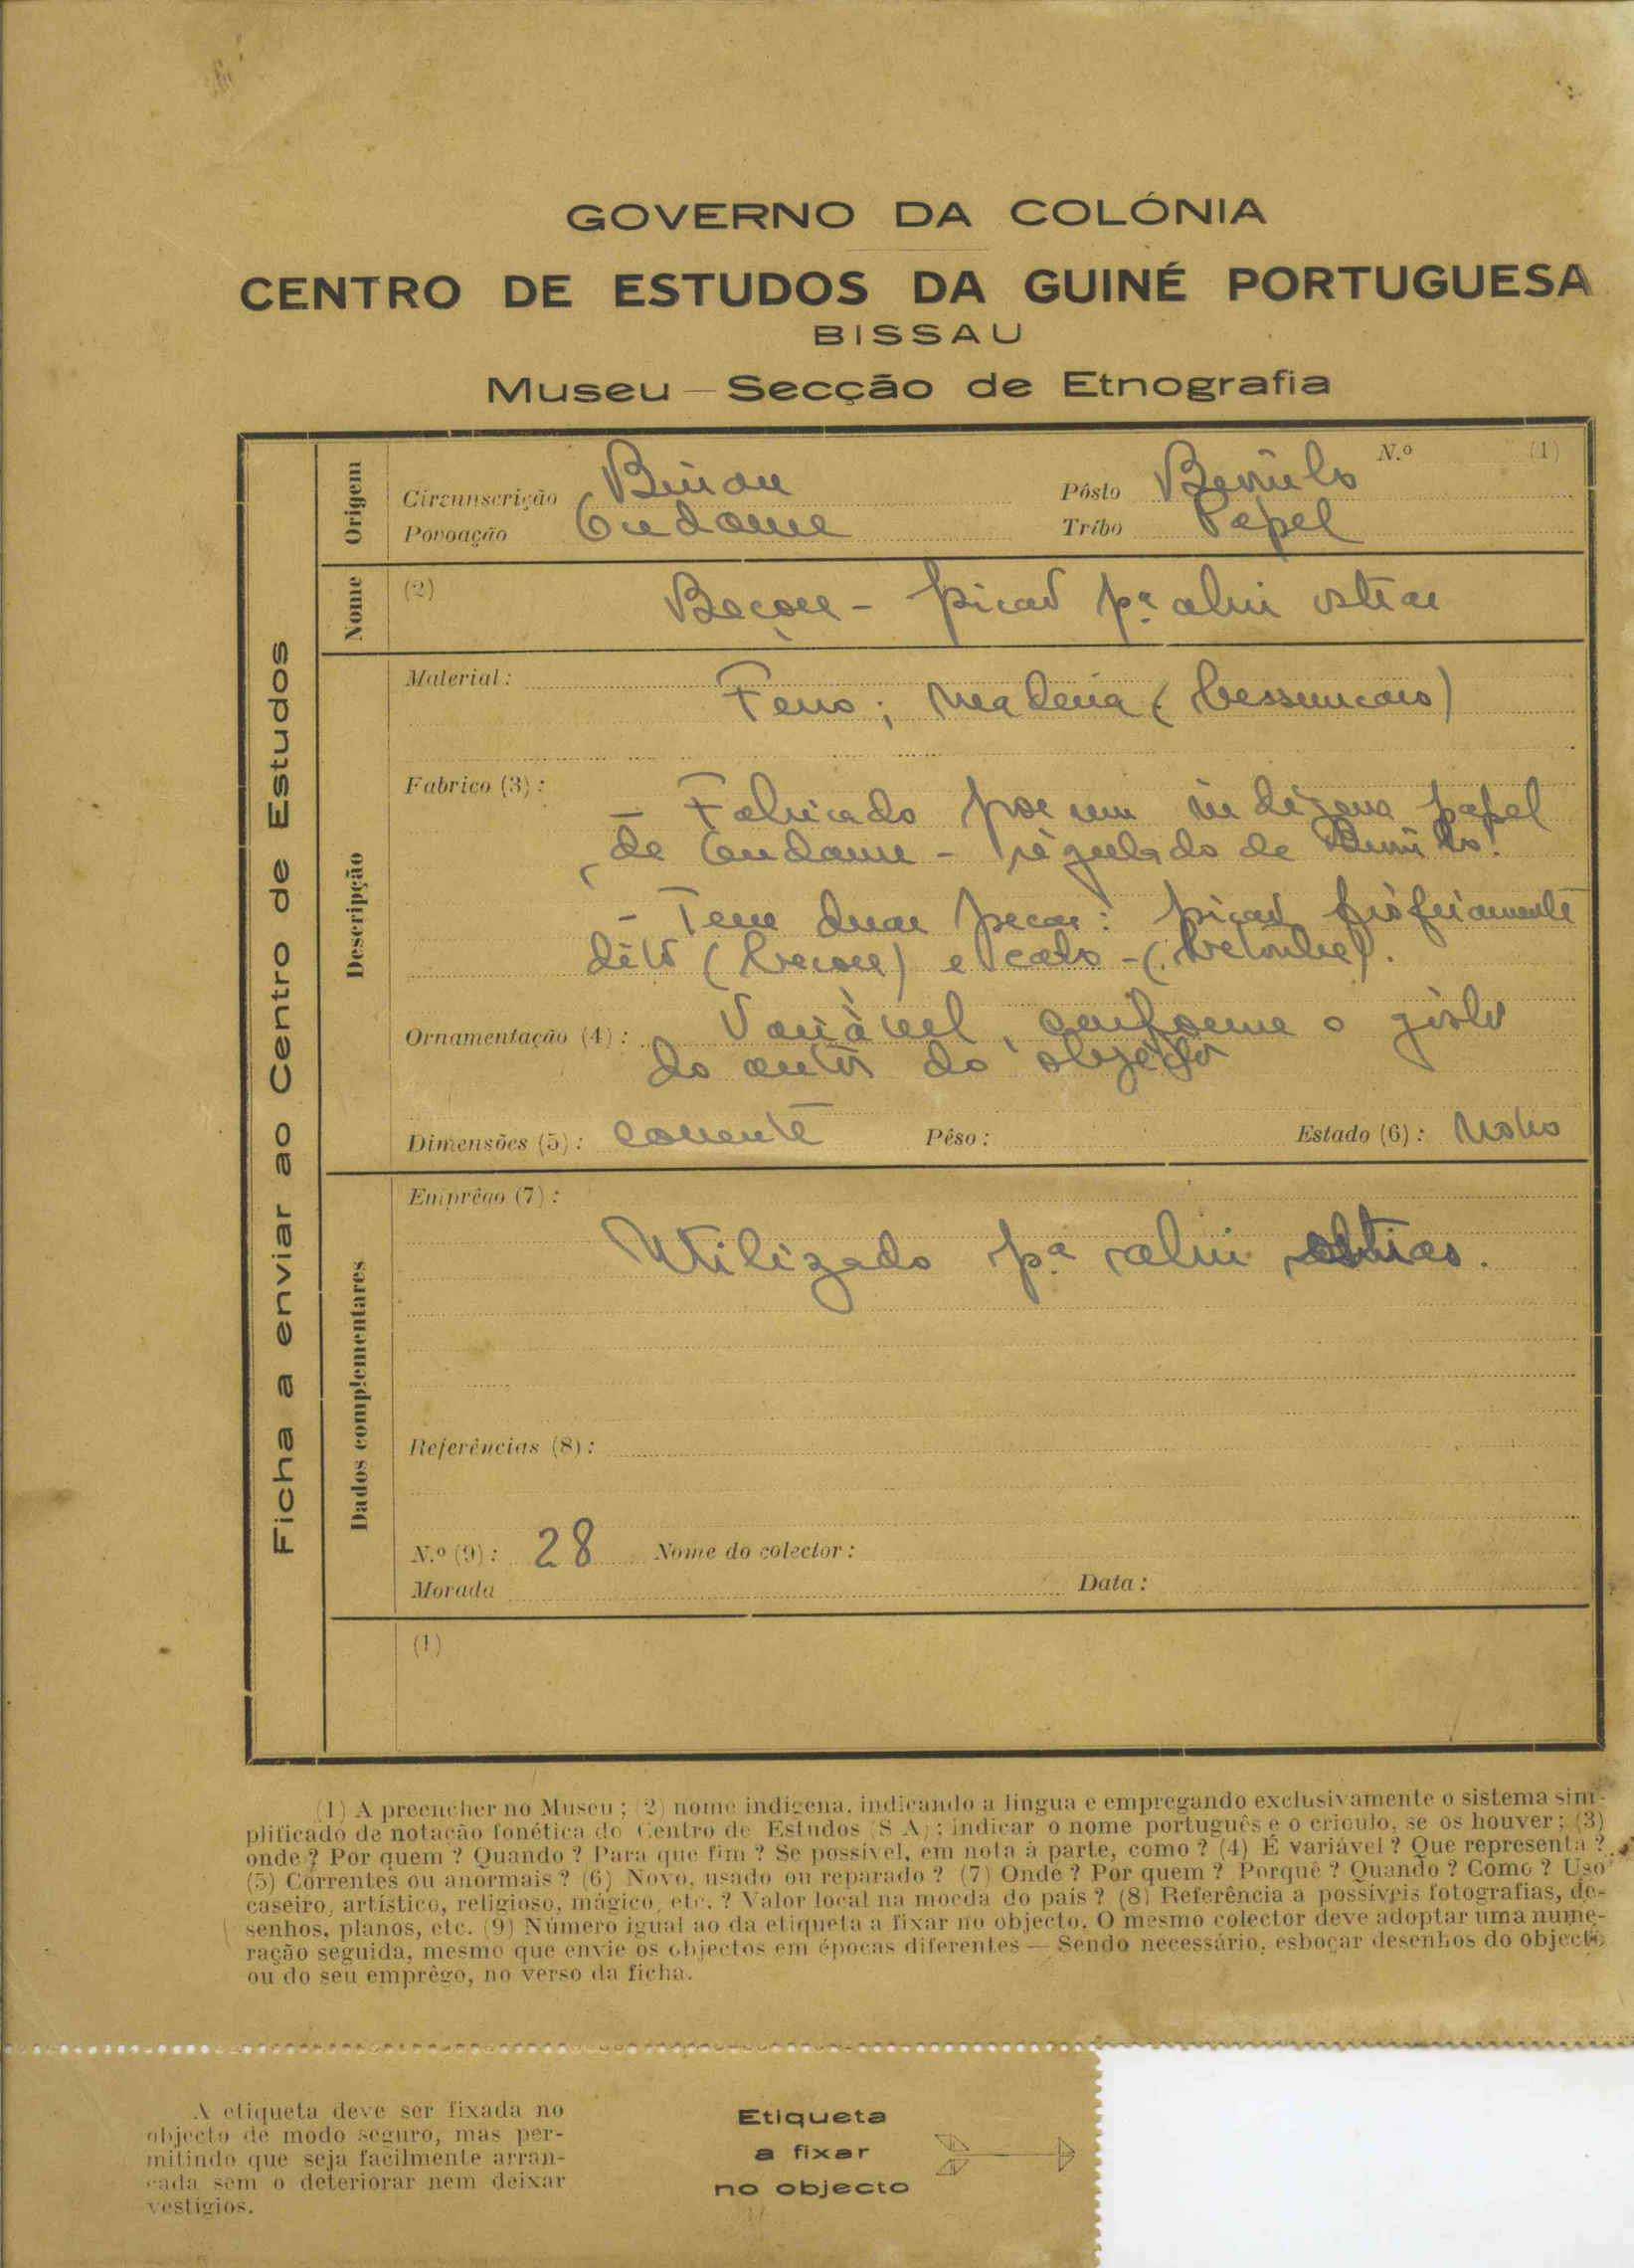 GOVERNO DA COLÓNIA
CENTRO DE ESTUDOS DA GUINÉ PORTUGUESA
BISSAU
Museu — Secção de Etnografia
Ficha a enviar ao Centro de Estudos
Origem
N.º (1)
Circunscrição Bissau Pôsto
Povoação Tríbo Papel
Nome
(2) picad pª abrir ostras
Descripção
Material: Ferro; Madeira
Fabrico (3):
— Fabricado por um indígena papel
de — régulado de
— Tem duas peças: picad pròpriamente
dito e cabo
Ornamentação (4): Variável, conforme o gôsto
do autor do objecto
Dimensões (5): corrente Pêso: Estado (6): Novo
Dados complementares
Emprêgo (7):
Utilizado pª abrir ostras.
Referências (8):
N.º (9): 28 Nome do colector:
Morada Data:
(1)
(1) A preencher no Museu; (2) nome indígena, indicando a língua e empregando exclusivamente o sistema sim-
plificado de notação fonética do Centro de Estudos (S A); indicar o nome português e o crioulo, se os houver; (3)
onde? Por quem? Quando? Para que fim? Se possível, em nota à parte, como? (4) É variável? Que representa?
(5) Correntes ou anormais? (6) Novo, usado ou reparado? (7) Onde? Por quem? Porquê? Quando? Como? Uso
caseiro, artístico, religioso, mágico, etc.? Valor local na moeda do país? (8) Referência a possíveis fotografias, de-
senhos, planos, etc. (9) Número igual ao da etiqueta a fixar no objecto. O mesmo colector deve adoptar uma nume-
ração seguida, mesmo que envie os objectos em épocas diferentes — Sendo necessário, esboçar desenhos do objecto
ou do seu emprêgo, no verso da ficha.
A etiqueta deve ser fixada no
objecto de modo seguro, mas per-
mitindo que seja facilmente arran-
cada sem o deteriorar nem deixar
vestígios.
Etiqueta
a fixar
no objecto